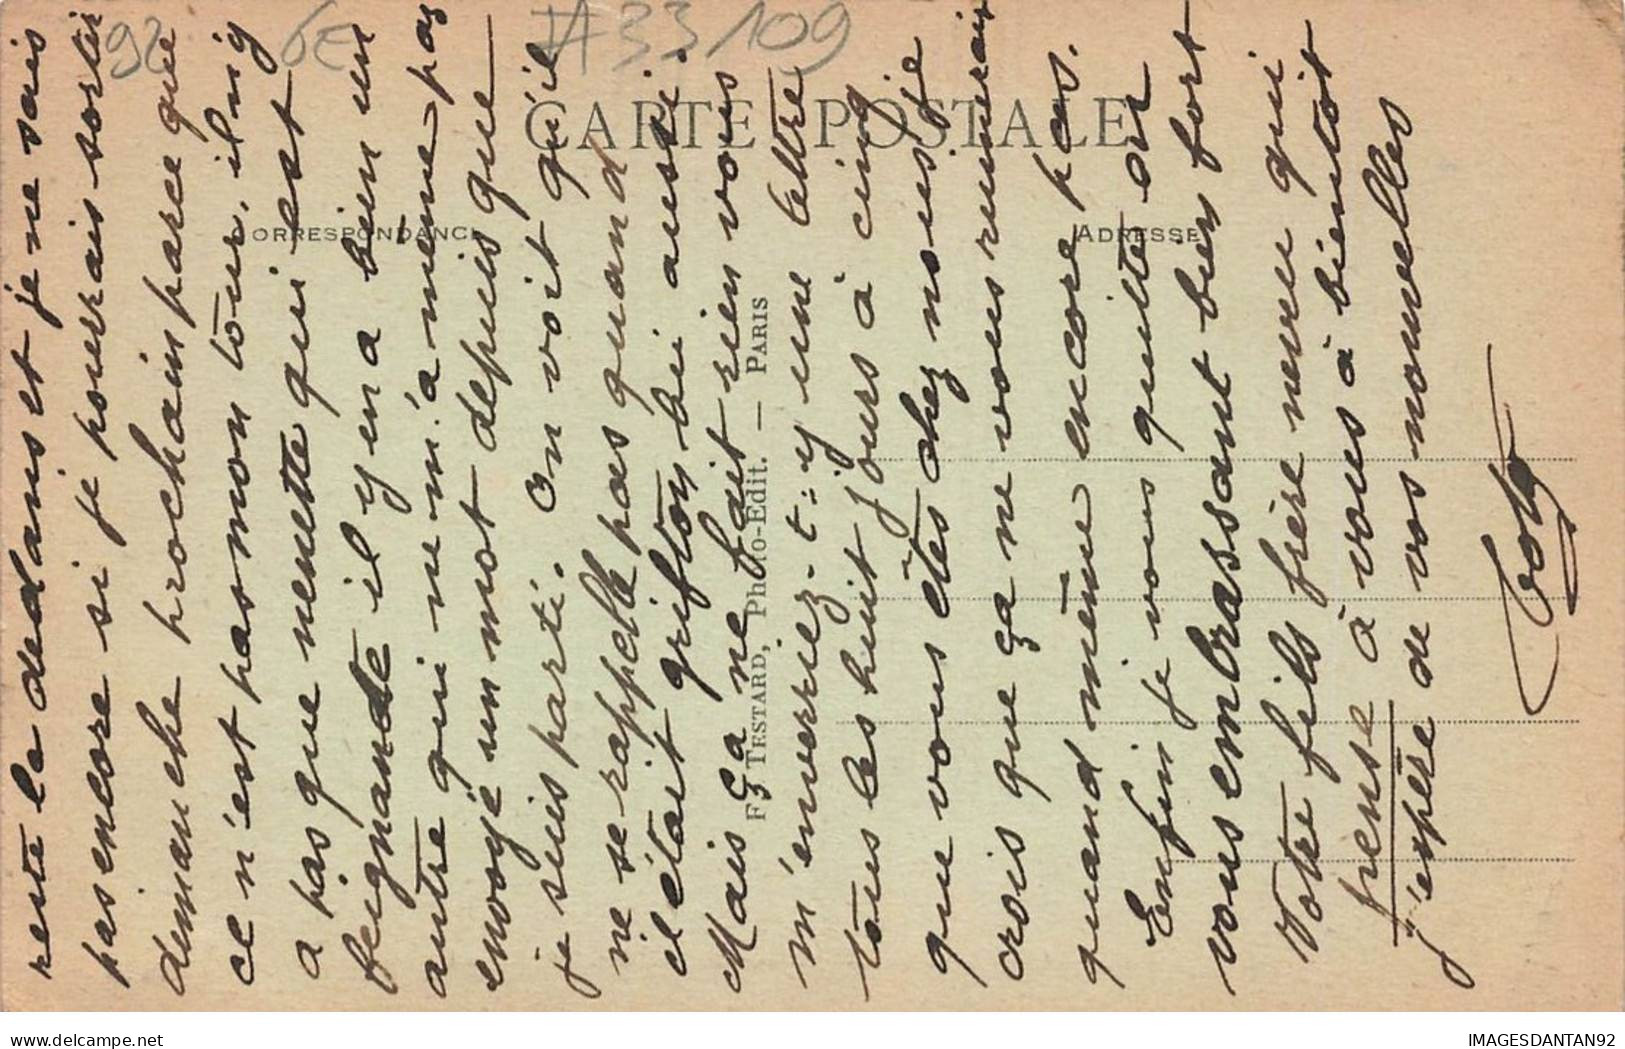 92 6E #33/109
CARTE POSTALE
CORRESPONDANCE
ADRESSE
F. TESTARD, Photo-Edit. — PARIS
reste le dedans et je ne sais
pas encore si je pourrais sortir
dimanche prochain parce que
ce n'est pas mon tour. il n'y
a pas que nenette qui est
feignante il y en a bien un
autre qui ne m'a même pas
envoyé un mot depuis que
je suis parti. On voit qu'il
ne se rappelle pas quand
il était griffton lui aussi.
Mais ça ne fait rien vous
m'enverrez-t-y une lettre
tous les huit jours à cinq
que vous êtes chez nous je
crois que ça ne vous ruinerais
quand même encore pas.
Enfin je vous quitte en
vous embrassant bien fort
Votre fils frère neveu qui
pense à vous à bientôt
j'espère de vos nouvelles
Toto
IMAGESDANTAN92
www.delcampe.net